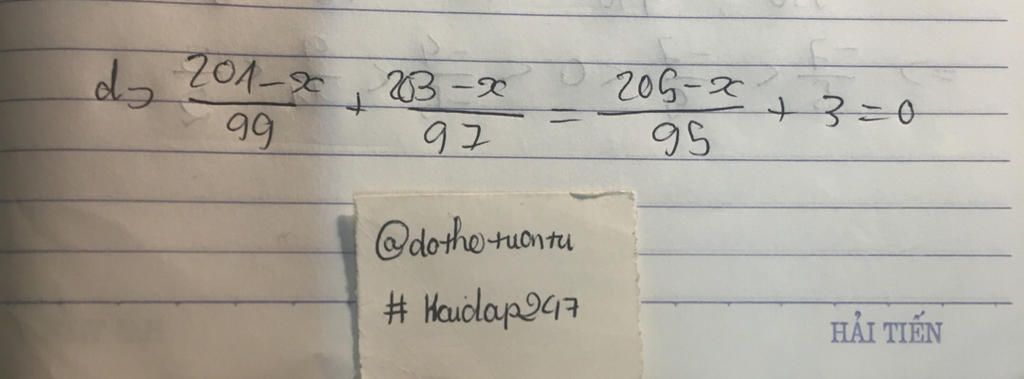 d> (201-x)/99 + (203-x)/97 = (205-x)/95 + 3 = 0
@dothetuontu
# Hoidap247
HẢI TIẾN